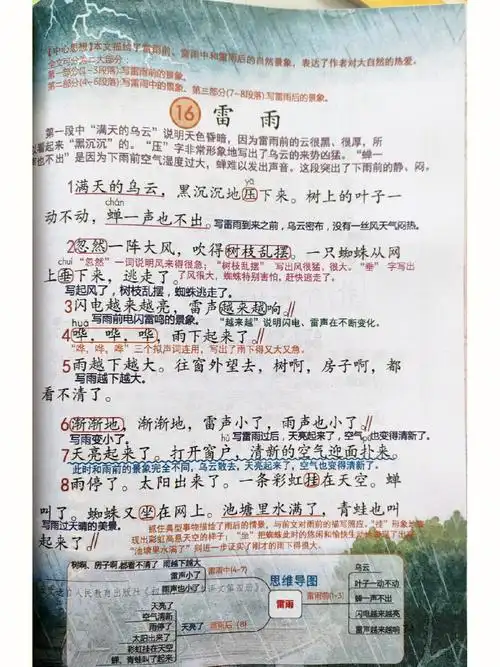 【中心思想】本文描绘了雷雨前、雷雨中和雷雨后的自然景象,表达了作者对大自然的热爱。
全文可分为三大部分:
第一部分(1-3段落)写雷雨前的景象。
第二部分(4-6段落)写雷雨中的景象。第三部分(7-8段落)写雷雨后的景象。
16 雷雨
第一段中“满天的乌云”说明天色昏暗,因为雷雨前的云很黑、很厚,所
以看起来“黑沉沉”的。“压”字非常形象地写出了乌云的来势凶猛。“蝉一
声也不出”是因为下雨前空气湿度过大,蝉难以发出声音。这段突出了下雨前的静、闷。
yā
1满天的乌云,黑沉沉地压下来。树上的叶子一
chán
动不动,蝉一声也不出。写雷雨到来之前,乌云密布,没有一丝风天气闷热。
2忽然一阵大风,吹得树枝乱摆。一只蜘蛛从网
chuí “忽然”一词说明风来得很急;“树枝乱摆”写出风很猛,很大。“垂”字写出
上垂下来,逃走了。了风很大,蜘蛛特别害怕,赶快逃走了。
写起风了,树枝乱摆,蜘蛛逃走了。
3闪电越来越亮,雷声越来越响。
huā 写雨前电闪雷鸣的景象。 “越来越”说明闪电、雷声在不断变化。
4哗,哗,哗,雨下起来了。
“哗,哗,哗”三个拟声词连用,写出了雨下得又大又急。
5雨越下越大。往窗外望去,树啊,房子啊,都
写雨越下越大。
看不清了。
6渐渐地,渐渐地,雷声小了,雨声也小了。
写雨变小了。 hù 写雷雨过后,天亮起来了,空气也变得清新了。
7天亮起来了。打开窗户,清新的空气迎面扑来。
此时和雨前的景象完全不同,乌云散去,天亮起来了,空气也变得清新了。
8雨停了。太阳出来了。一条彩虹挂在天空。蝉
叫了。蜘蛛又坐在网上。池塘里水满了,青蛙也叫
写雨过天晴的美景。 抓住典型事物描绘了雨后的情景,与前文对雨前的描写照应。“挂”形象地
起来了。 现出彩虹高悬天空的样子;“坐”把蜘蛛此时的悠闲和愉快生动地
“池塘里水满了”则进一步证实了刚才的雨下得很大。
思维导图
雷雨
雷雨前(1-3)
乌云
叶子一动不动
蝉一声不响
闪电越来越亮
雷声越来越响
雷雨中(4-7)
树啊,房子啊,都看不清了 雨越下越大
雷声小了
雨声也小了
天亮了
天亮了
空气清新
雨停了
太阳出来了
彩虹挂在天空
蝉、青蛙叫了起来